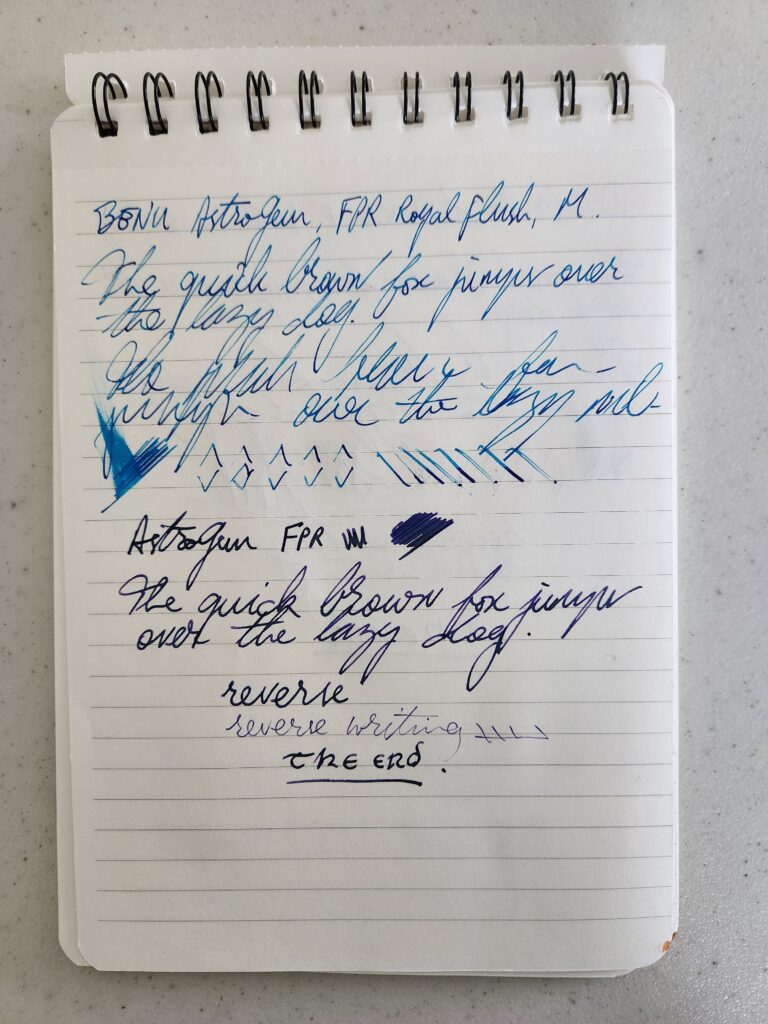 BENU AstroGem, FPR Royal Flush, M.
The quick brown fox jumps over
the lazy dog.
over the lazy
AstroGem FPR
The quick brown fox jumps
over the lazy dog.
reverse
reverse writing
the end.